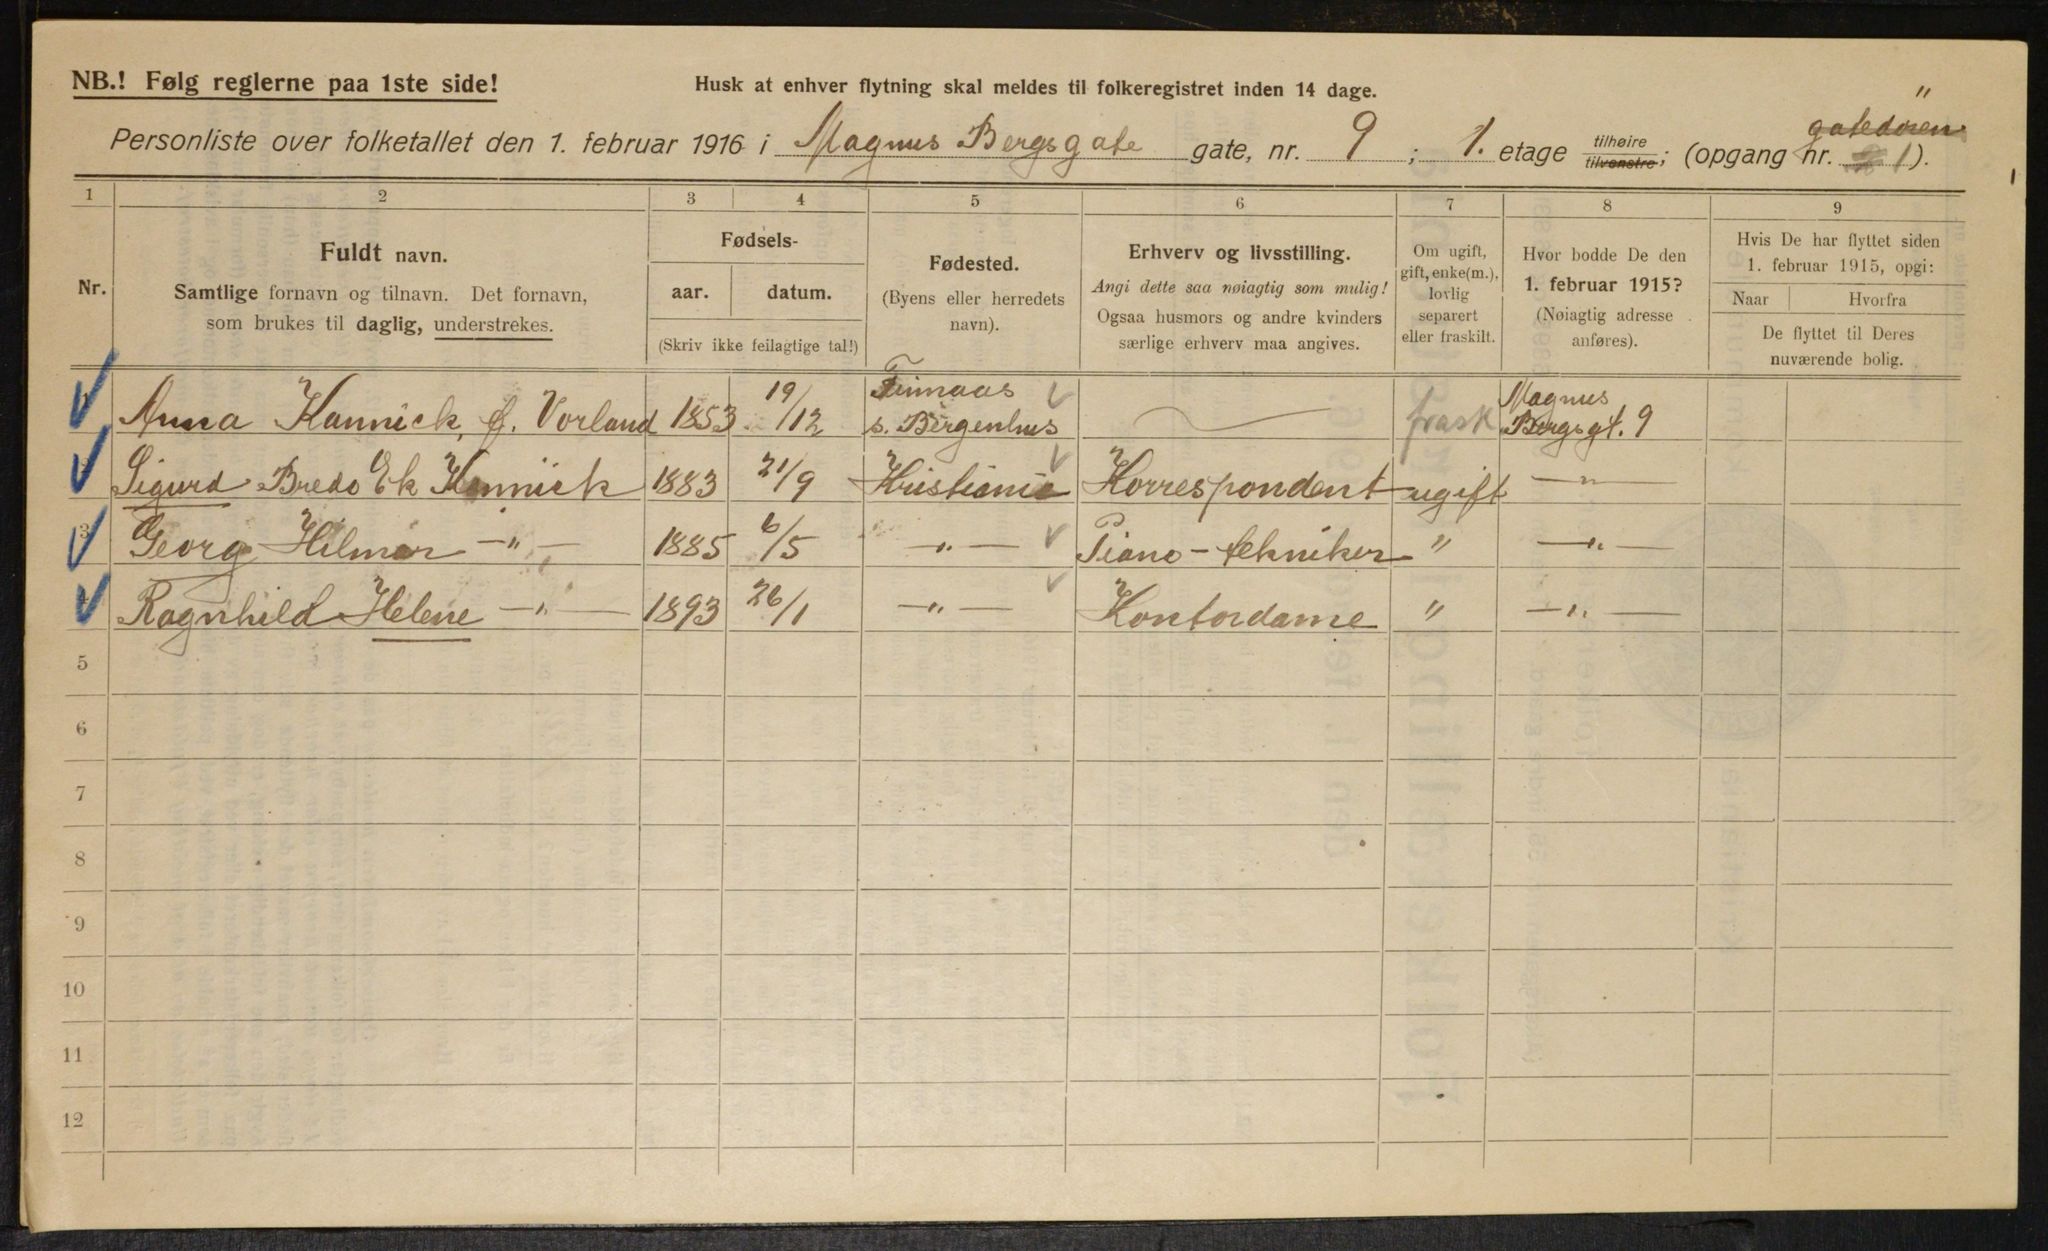 NB.! Følg reglerne paa 1ste side!
Husk at enhver flytning skal meldes til folkeregistret inden 14 dage.
"
gatedøren
Personliste over folketallet den 1. februar 1916 i Magnus Bergsgate gate, nr. 9 ; 1. etage tilhøire tilvenstre; (opgang nr. 1).
1 2 3 4 5 6 7 8 9
Nr.
Fuldt navn.
Samtlige fornavn og tilnavn. Det fornavn,
som brukes til daglig, understrekes.
Fødsels-
aar. datum.
(Skriv ikke feilagtige tal!)
Fødested.
(Byens eller herredets
navn).
Erhverv og livsstilling.
Angi dette saa nøiagtig som mulig!
Ogsaa husmors og andre kvinders
særlige erhverv maa angives.
Om ugift,
gift, enke(m.),
lovlig
separert
eller fraskilt.
Hvor bodde De den
1. februar 1915?
(Nøiagtig adresse
anføres).
Hvis De har flyttet siden
1. februar 1915, opgi:
Naar Hvorfra
De flyttet til Deres
nuværende bolig.
Anna Kannick, f. Vorland 1853 19/12 Finnaas s. Bergenhus frask Magnus Bergsgt. 9
Sigurd Bredo Ek Kannick 1883 21/9 Kristiania Korrespondent ugift —"—
3 Georg Hilmar —"— 1885 6/5 —"— Piano-tekniker " —"—
4 Ragnhild Helene —"— 1893 26/1 —"— Kontordame " —"—
5
6
7
8
9
10
11
12